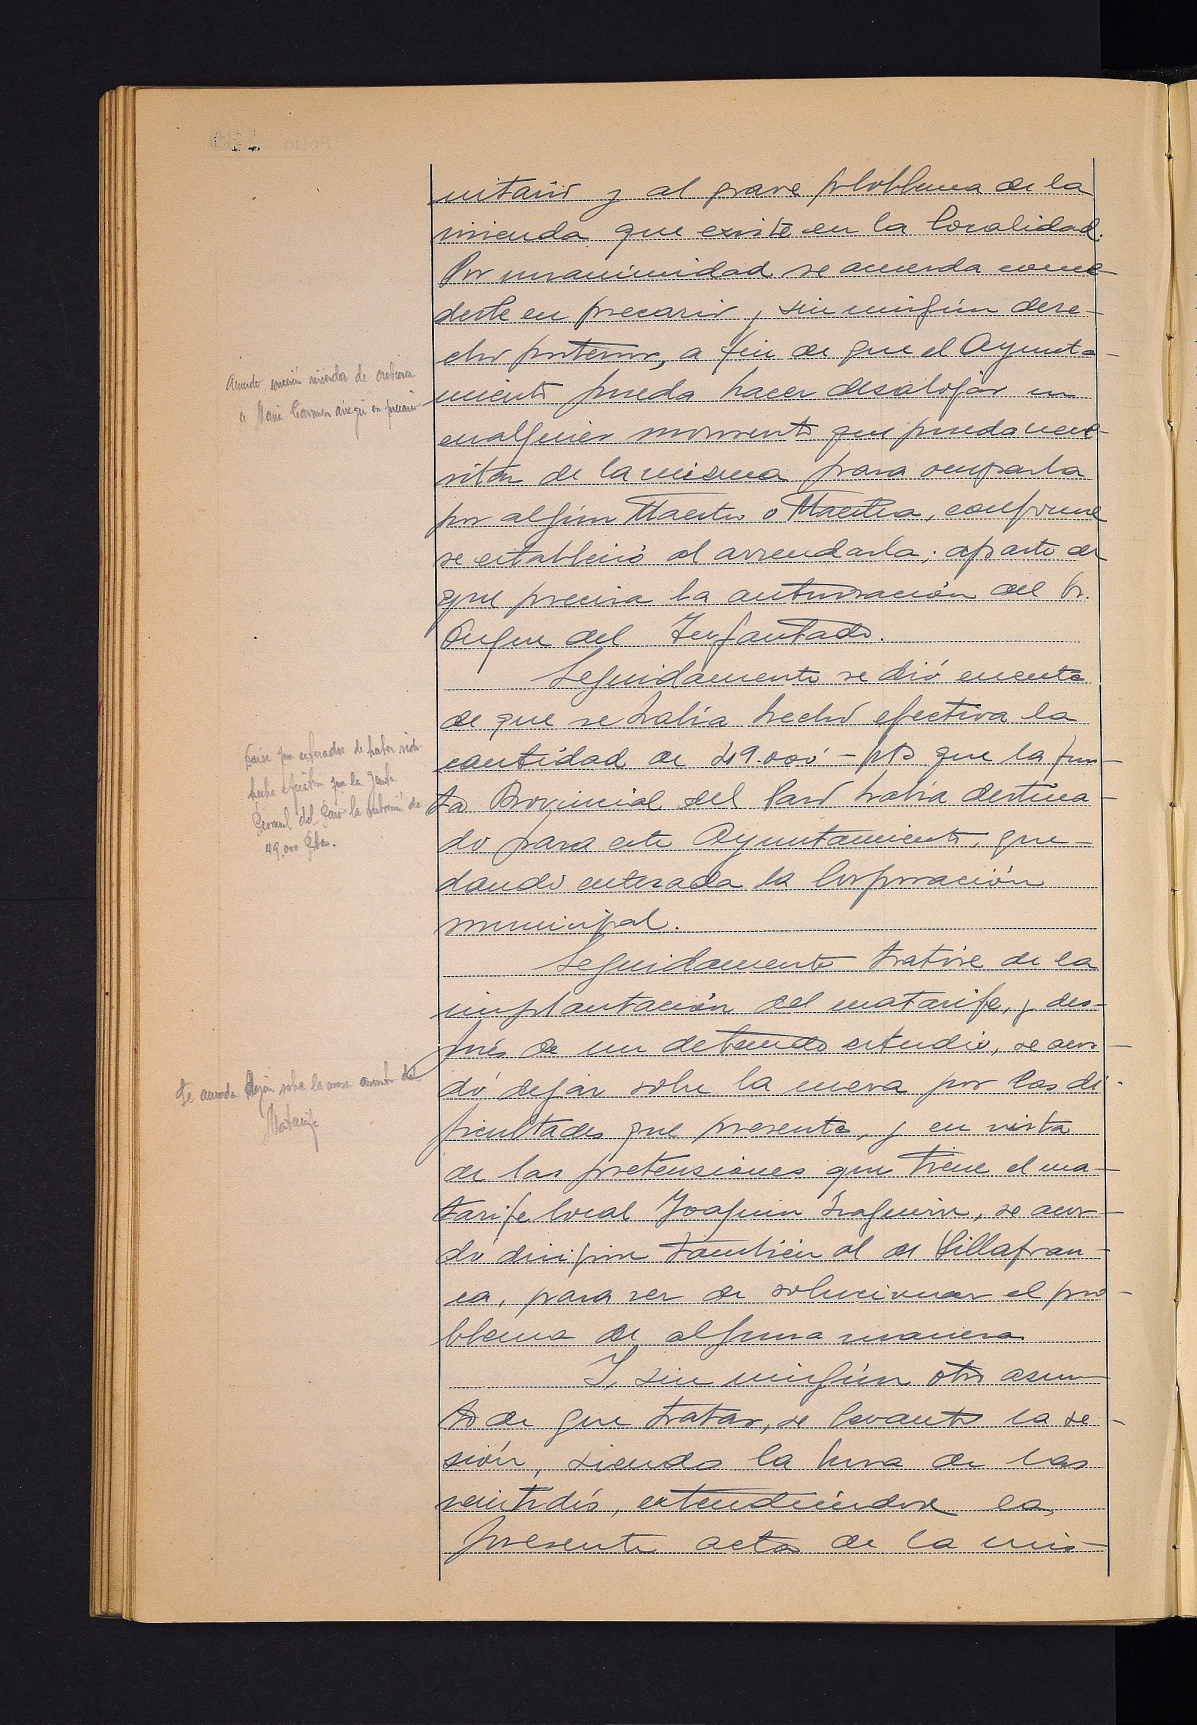 nitario y al grave ploblema de la
vivienda que existe en la localidad.
Por unanimidad se acuerda conce-
derle en precario, sin ningún dere-
cho posterior, a fin de que el Ayunta-
miento pueda hacer desalojar en
cualquier momento que pueda nece-
sitar de la misma para ocuparla
por algún Maestro o Maestra, conforme
se estableció al arrendarla; aparte de
que precisa la autorización del Sr.
Duque del Infantado.
Seguidamente se dió cuenta
de que se había hecho efectiva la
cantidad de 49.000'- pts que la Jun-
ta Provincial del Paro había destina-
do para este Ayuntamiento, que-
dando enterada la Corporación
municipal.
Seguidamente tratóse de la
implantación del matarife, y des-
pués de un detenido estudio, se acor-
dó dejar sobre la mesa por las di-
ficultades que presenta, y en vista
de las pretensiones que tiene el ma-
tarife local Joaquin, se acor-
do dirigirse también al de Villafran-
ca, para ver de solucionar el pro-
blema de alguna manera
Y, sin ningún otro asun-
to de que tratar, se levanto la se-
sión, siendo la hora de las
veintidós, extendiéndose la
presente acta de la mis-
Acuerdo concesión vivienda de
a Maria Carmen en precario
Darse por enterados de haber sido
hecha efectiva por la Junta
del Paro la de
49.000 Ptas.
Se acuerda dejar sobre la mesa asunto del
Matarife